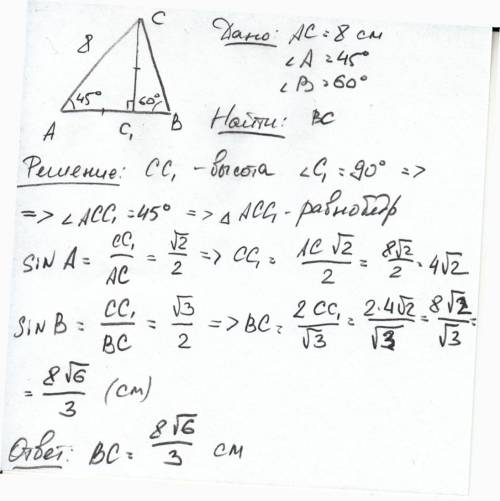 C
8
45°
60°
A
C₁
B
Дано: AC = 8 см
∠A = 45°
∠B = 60°
Найти: BC
Решение: CC₁ - высота ∠C₁ = 90° =>
=> ∠ACC₁ = 45° => △ACC₁ - равнобедр
sin A = CC₁/AC = √2/2 => CC₁ = AC√2/2 = 8√2/2 = 4√2
sin B = CC₁/BC = √3/2 => BC = 2CC₁/√3 = 2·4√2/√3 = 8√2/√3 =
= 8√6/3 (см)
Ответ: BC = 8√6/3 см